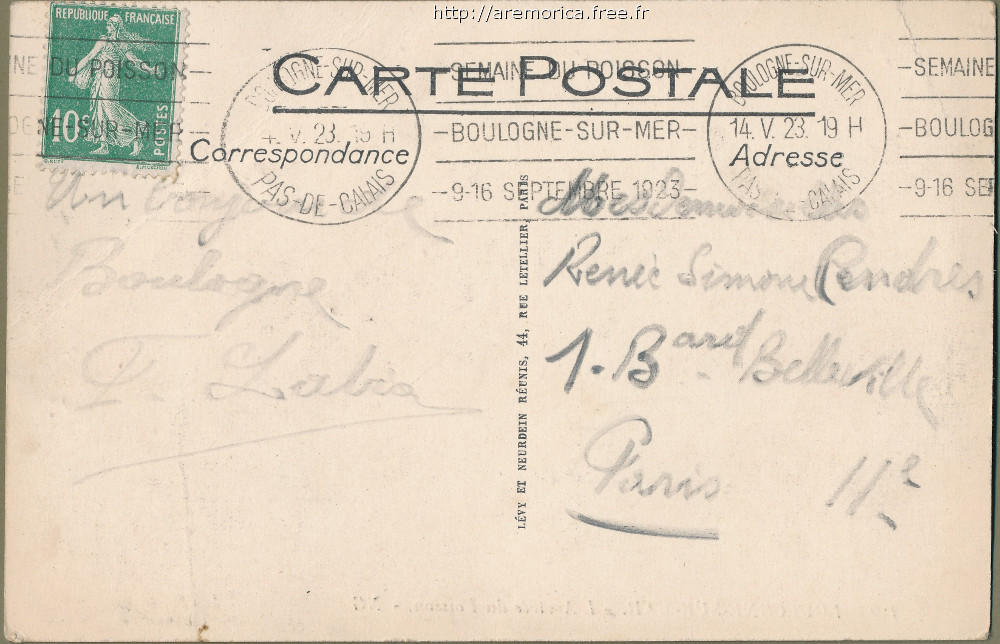 http://aremorica.free.fr
REPUBLIQUE FRANÇAISE
10c
POSTES
NE DU POISSON
OGNE-SUR-MER
BOULOGNE-SUR-MER
4. V. 23. 19 H
PAS-DE-CALAIS
CARTE POSTALE
SEMAINE DU POISSON
-BOULOGNE-SUR-MER-
-9-16 SEPTEMBRE 1923-
BOULOGNE-SUR-MER
14. V. 23. 19 H
PAS-DE-CALAIS
-SEMAINE
-BOULOG
-9-16 SEP
Correspondance
Adresse
Un
Boulogne
LÉVY ET NEURDEIN RÉUNIS, 44, RUE LETELLIER, PARIS
Mesdemoiselles
Renée Simone
1. Bard Belleville
Paris 11e